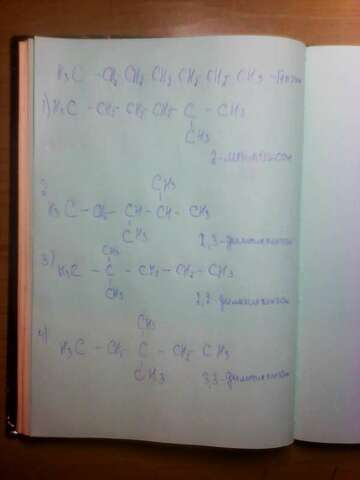 H₃C - CH₂ CH₂ CH₂ CH₂ CH₂ CH3 - Гептан
1) H₃C - CH₂ - CH₂ - CH₂ - C - CH₃
CH₃
2-метилгексан
2
CH₃
H₃C - CH₂ - CH - CH - CH₃
CH₃
2,3-диметилпентан
3)
CH₃
H₃C - C - CH₂ - CH₂ - CH₃
CH₃
2,2-диметилпентан
4)
CH₃
H₃C - CH₂ - C - CH₂ - CH₃
CH3
3,3-диметилпентан